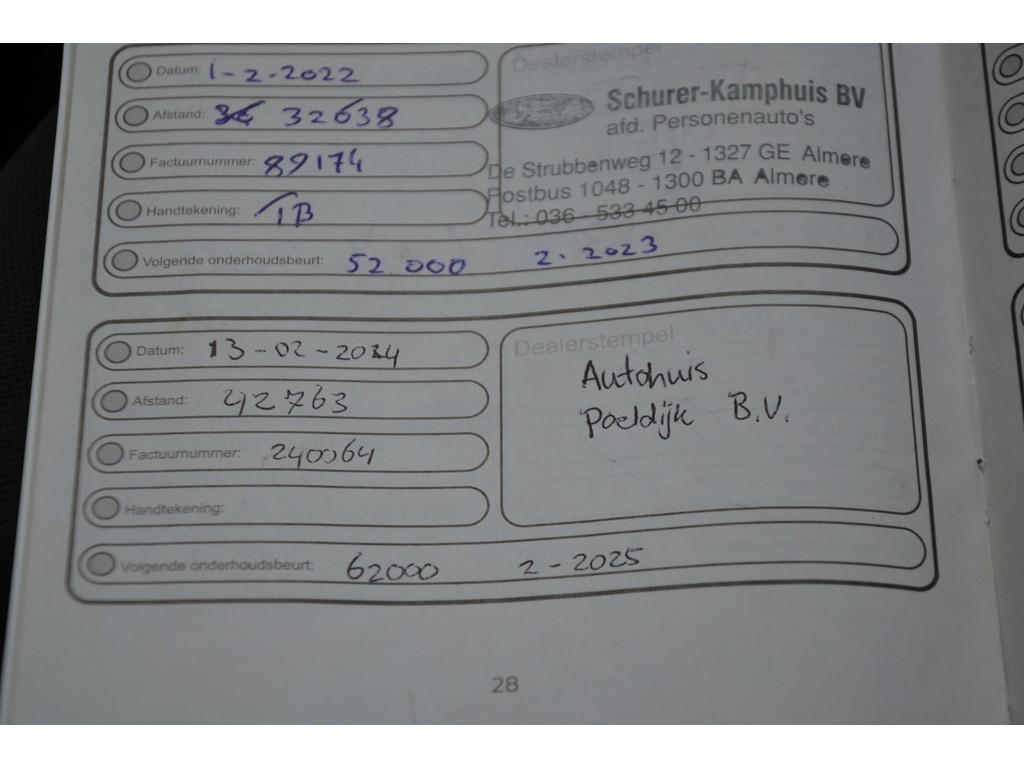 Datum: 1-2-2022
Afstand: 32638
Factuurnummer: 89174
Handtekening: TB
Dealerstempel
Schurer-Kamphuis BV
afd. Personenauto's
De Strubbenweg 12 - 1327 GE Almere
Postbus 1048 - 1300 BA Almere
Tel.: 036 - 533 45 00
Volgende onderhoudsbeurt: 52 000 2. 2023
Datum: 13-02-2024
Afstand: 42763
Factuurnummer: 240064
Handtekening:
Dealerstempel
Autohuis
Poeldijk B.V.
Volgende onderhoudsbeurt: 62000 2-2025
28